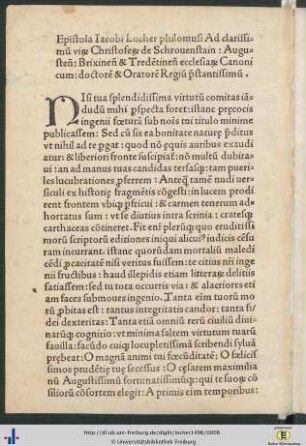 Epistola Iacobi Locher philomusi Ad clarissi-
mū virū Christoferū de Schrouenstain : Augu-
steñ: Brixineñ & Tredētineñ ecclesiarū Canoni
cum: doctorē & Oratorē Regiū p̄stantissimū .
NIsi tua splendidissima virtutū comitas iā-
dudū mihi pspecta foret: istanc precocis
ingenii fœturā sub nois tui titulo minime
publicassem: Sed cū sis ea bonitate naturę p̄ditus
vt nihil ad te pgat: quod nō equis auribus exaudi
atur: & liberiori fronte suscipiat: nō multū dubita-
ui: an ad manus tuas candidas tersasq; tam pueri-
les lucubrationes pferrem : Anteq̄ tamē nudi uer-
siculi ex historię fragmētis cōgesti: in lucem prodi
rent frontem vbiq; pfricui : & carmen tenerum ad-
hortatus sum : vt se diutius intra scrinia : cratesq;
carthaceas cōtineret. Fit eni plerūq; quo eruditissi
morū scriptorū editiones iniqui alicuiꝰ iudicis cēsu
ram incurrant: istanc quorūdam mortaliū maledi
cēdi pcacitatē nisi veritus fuissem: te citius nri inge
nii fructibus : haud illepidis etiam litterarū delitiis
satiassem: sed tu tota occurris via : & alacriores eti
am faces submoues ingenio. Tanta eim tuorū mo
rū pbitas est : tantus integritatis candor: tanta fi/
dei dexteritas: Tanta etiā omniū rerū ciuiliū diuina
rūq; cognitio: vt minima saltem virtutum tuarū
fauilla: facūdo cuiq; locupletissimā scribendi syluā
prębeat: O magnā animi tui fœcūditatē: O fœlicis
simos prudētię tuę secessus : O cęsarem maximilia
nū Augustissimū fortunatissimūq; : qui te suorū cō
siliorū cōsortem elegit: A primis eim temporibus:
http://dl.ub.uni-freiburg.de/diglit/locher1496/0008
© Universitätsbibliothek Freiburg